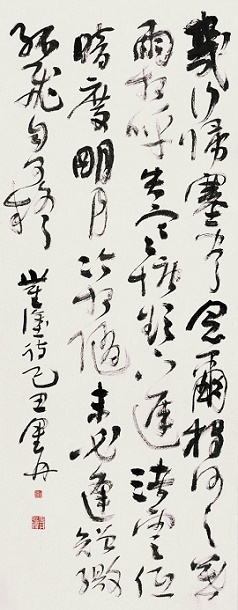 幾行歸塞盡念爾獨何之暮
雨相呼失寒塘欲下遲渚雲低
暗度關月冷相隨未必逢矰繳
孤飛自可疑
崔塗詩己丑